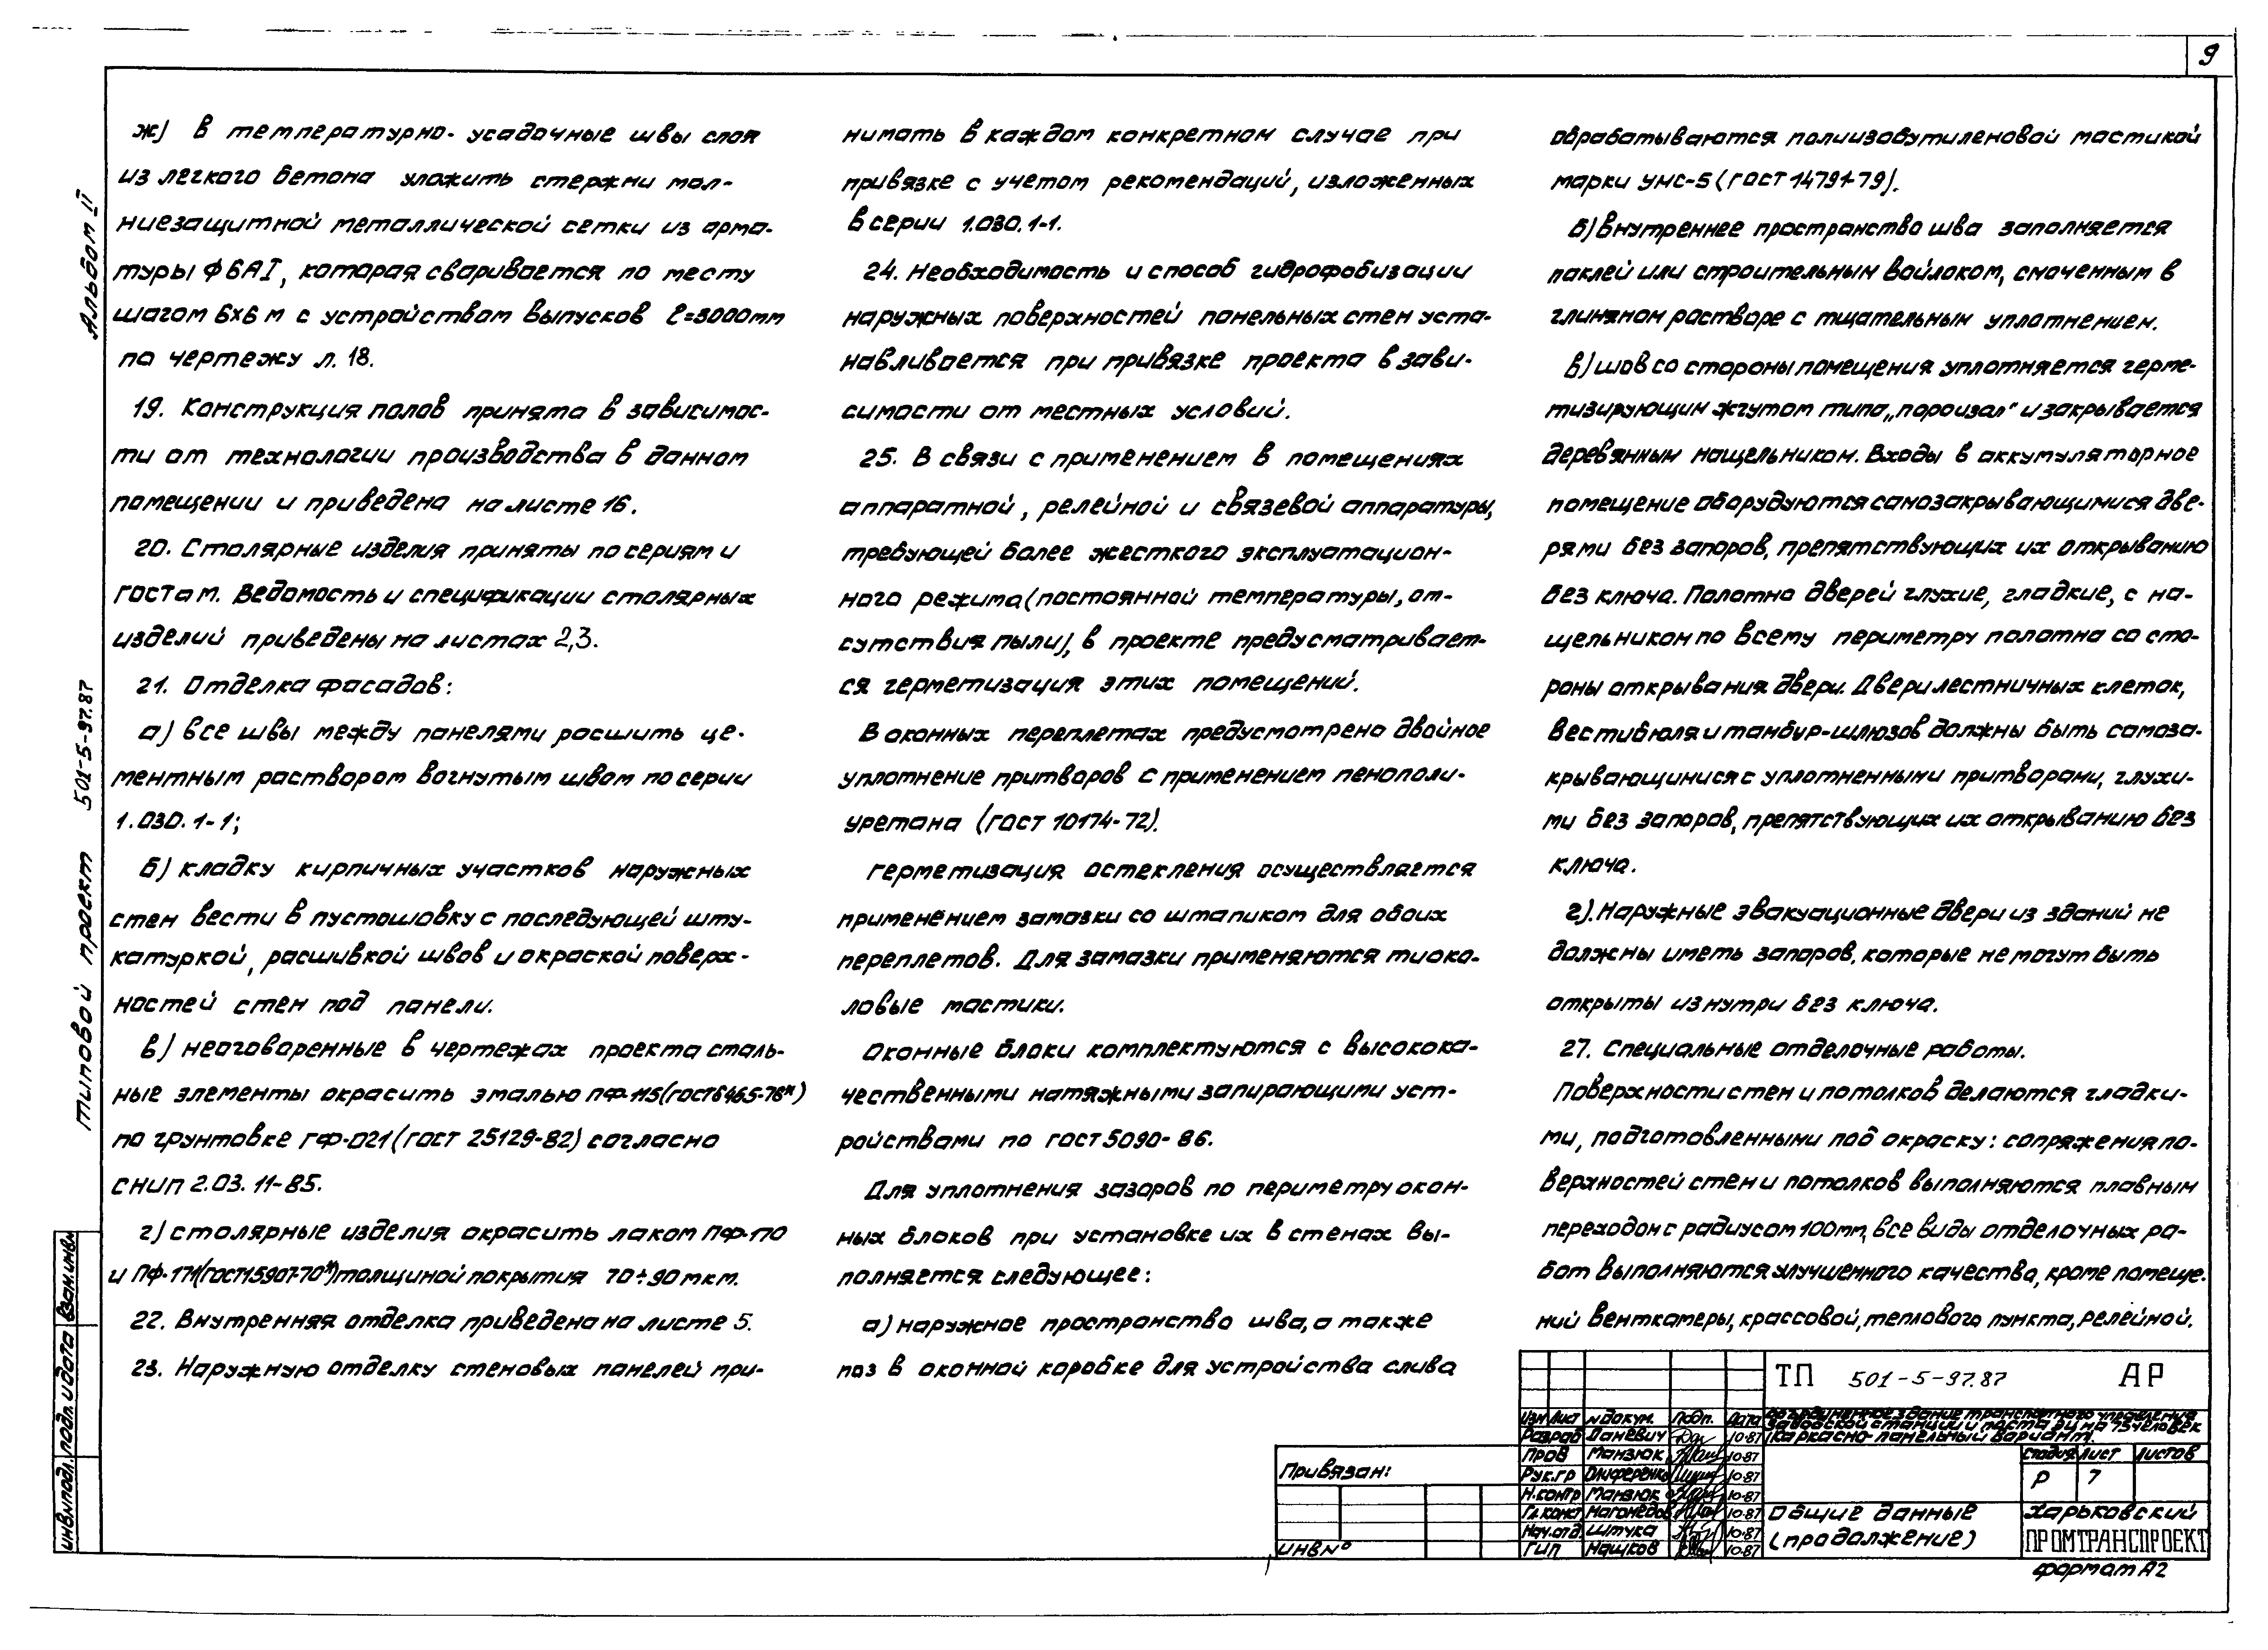 9
ж) в температурно-усадочные швы слоя
из легкого бетона уложить стержни мол-
ниезащитной металлической сетки из арма-
туры ф6АI, которая сваривается по месту
шагом 6х6 м с устройством выпусков ℓ=3000мм
по чертежу л. 18.
19. Конструкция полов принята в зависимос-
ти от технологии производства в данном
помещении и приведена на листе 16.
20. Столярные изделия приняты по сериям и
гостам. Ведомость и спецификации столярных
изделий приведены на листах 2,3.
21. Отделка фасадов:
а) все швы между панелями расшить це-
ментным раствором вогнутым швом по серии
1.030.1-1;
б) кладку кирпичных участков наружных
стен вести в пустошовку с последующей шту-
катуркой, расшивкой швов и окраской поверх-
ностей стен под панели.
в) неоговоренные в чертежах проекта сталь-
ные элементы окрасить эмалью ПФ-115(ГОСТ6465-76ж)
по грунтовке ГФ-021(ГОСТ 25129-82) согласно
СНИП 2.03.11-85.
г) столярные изделия окрасить лаком ПФ-170
и ПФ-171(ГОСТ15907-70ж) толщиной покрытия 70÷90мкм.
22. Внутренняя отделка приведена на листе 5.
23. Наружную отделку стеновых панелей при-
нимать в каждом конкретном случае при
привязке с учетом рекомендаций, изложенных
в серии 1.030.1-1.
24. Необходимость и способ гидрофобизации
наружных поверхностей панельных стен уста-
навливается при привязке проекта в зави-
симости от местных условий.
25. В связи с применением в помещениях
аппаратной, релейной и связевой аппаратуры,
требующей более жесткого эксплуатацион-
ного режима (постоянной температуры, от-
сутствия пыли), в проекте предусматривает-
ся герметизация этих помещений.
В оконных переплетах предусмотрено двойное
уплотнение притворов с применением пенополи-
уретана (ГОСТ 10174-72).
Герметизация остекления осуществляется
применением замазки со штапиком для обоих
переплетов. Для замазки применяются тиоко-
ловые мастики.
Оконные блоки комплектуются с высокока-
чественными натяжными запирающими уст-
ройствами по ГОСТ 5090-86.
Для уплотнения зазоров по периметру окон-
ных блоков при установке их в стенах вы-
полняется следующее:
а) наружное пространство шва, а также
паз в оконной коробке для устройства слива
обрабатываются полиизобутиленовой мастикой
марки УМС-5 (ГОСТ 14791-79).
б) внутреннее пространство шва заполняется
паклей или строительным войлоком, смоченным в
глиняном растворе с тщательным уплотнением.
в) шов со стороны помещения уплотняется герме-
тизирующим жгутом типа „пороизол" и закрывается
деревянным нащельником. Входы в аккумуляторное
помещение оборудуются самозакрывающимися две-
рями без запоров, препятствующих их открыванию
без ключа. Полотно дверей глухие, гладкие, с на-
щельником по всему периметру полотна со сто-
роны открывания двери. Двери лестничных клеток,
вестибюля и тамбур-шлюзов должны быть самоза-
крывающимися с уплотненными притворами, глухи-
ми без запоров, препятствующих их открыванию без
ключа.
г). Наружные эвакуационные двери из зданий не
должны иметь запоров, которые не могут быть
открыты изнутри без ключа.
27. Специальные отделочные работы.
Поверхности стен и потолков делаются гладки-
ми, подготовленными под окраску: сопряжения по-
верхностей стен и потолков выполняются плавным
переходом с радиусом 100мм, все виды отделочных ра-
бот выполняются улучшенного качества, кроме помеще-
ний венткамеры, кроссовой, теплового пункта, релейной.
Альбом II
Типовой проект 501-5-97.87
Инв.N подл. Подп. и дата Взам.инв.N
Привязан:
ИНВ N°
ТП 501-5-97.87 АР
Изм Лист N докум. Подп. Дата
Разраб Даневич 10-87
Пров Манзюк 10-87
Рук.гр Олиференко 10-87
Н.контр Манзюк 10-87
Гл.конст Магомедов 10-87
Нач.отд Штука 10-87
ГИП Машков 10-87
Объединенное здание транспортного управления
заводской станции и поста ЭЦ на 75 человек
Каркасно-панельный вариант.
Стадия Лист Листов
Р 7
Общие данные
(продолжение)
Харьковский
ПРОМТРАНСПРОЕКТ
Формат А2